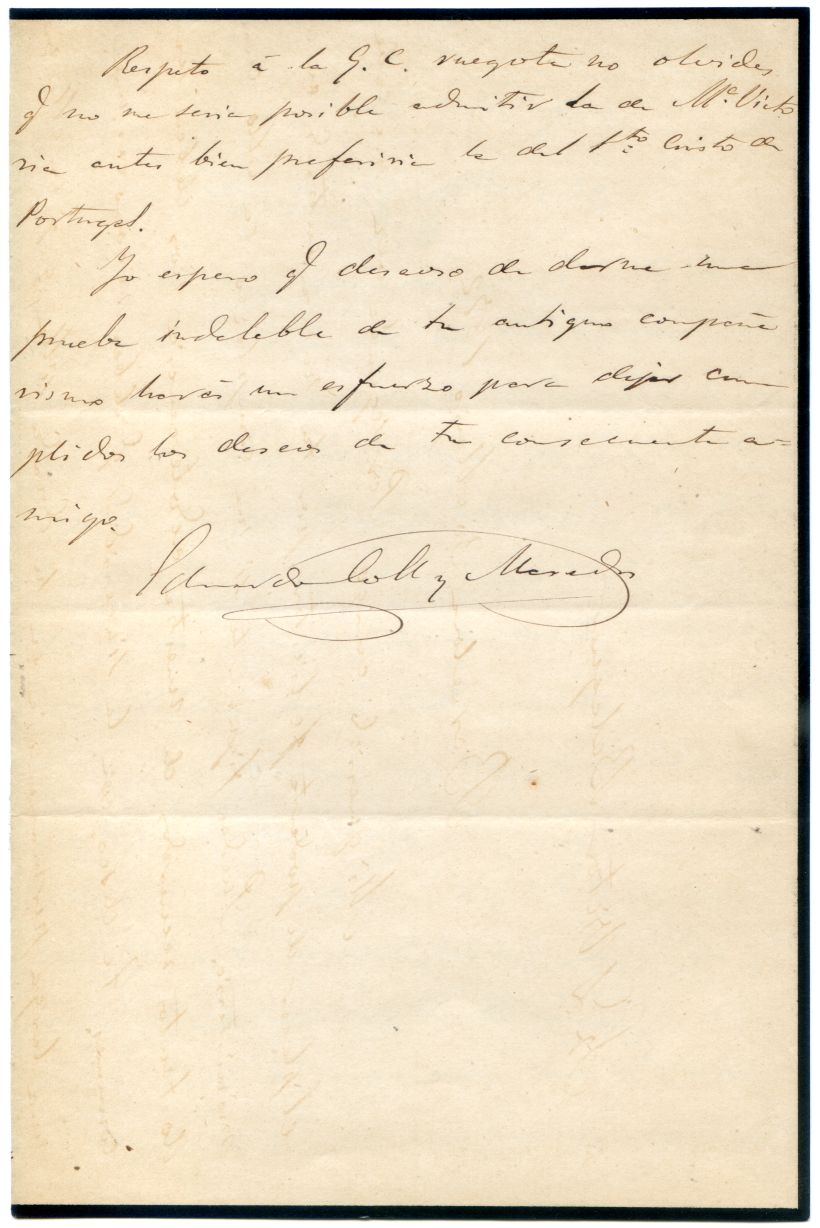 Respeto á la G. C. ruegote no olvides
q no me seria posible admitir la de Mª Victo
ria antes bien preferiria la del Sto. Cristo de
Portugal.
Yo espero q deseoso de darme una
prueba indeleble de tu antiguo compañe
rismo harás un esfuerzo para dejar cum
plidos los deseos de tu consecuente a=
migo.
Eduardo Coll y Masadas